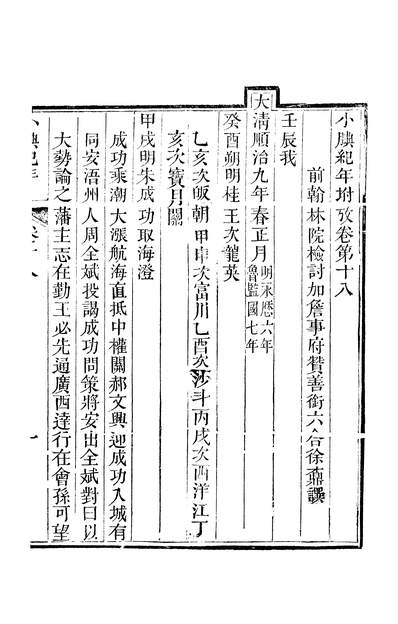 小腆紀年附攷卷第十八
前翰林院檢討加詹事府贊善銜六合徐鼒譔
壬辰我
大清順治九年春正月明永曆六年魯監國七年
癸酉朔明桂王次龍英
乙亥次皈朝甲申次富川乙酉次沙斗丙戌次西洋江丁
亥次寶月關
甲戌明朱成功取海澄
成功乘潮大漲航海直抵中權關郝文興迎成功入城有
同安浯州人周全斌投謁成功問策將安出全斌對曰以
大勢論之藩主志在勤王必先通廣西達行在會孫可望
小腆紀年
卷十八
一